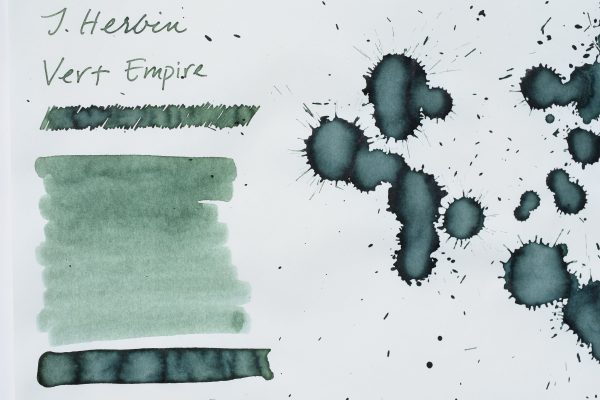 J. Herbin
Vert Empire